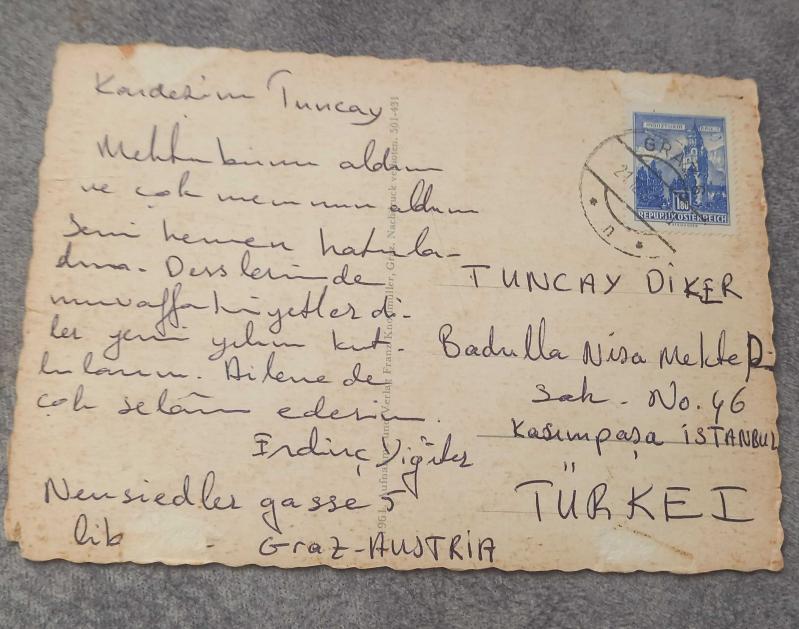 Kardeşim Tuncay
Mektubunu aldım
ve çok memnun oldum
Seni hemen hatırla-
dım. Derslerinde
muvaffakiyetler di-
ler yeni yılını kut-
lularım. Ailene de
çok selâm ederim.
Erdinç Yiğiter
Neusiedler gasse 5
lik
Graz-AUSTRIA
TUNCAY DİKER
Badulla Nisa Mektep
Sok. No. 46
Kasımpaşa İSTANBUL
TÜRKEI
GRAZ
1.80
REPUBLIK ÖSTERREICH
1961 Aufnahme und Verlag Franz Knollmüller, Graz. Nachdruck verboten. 501-431